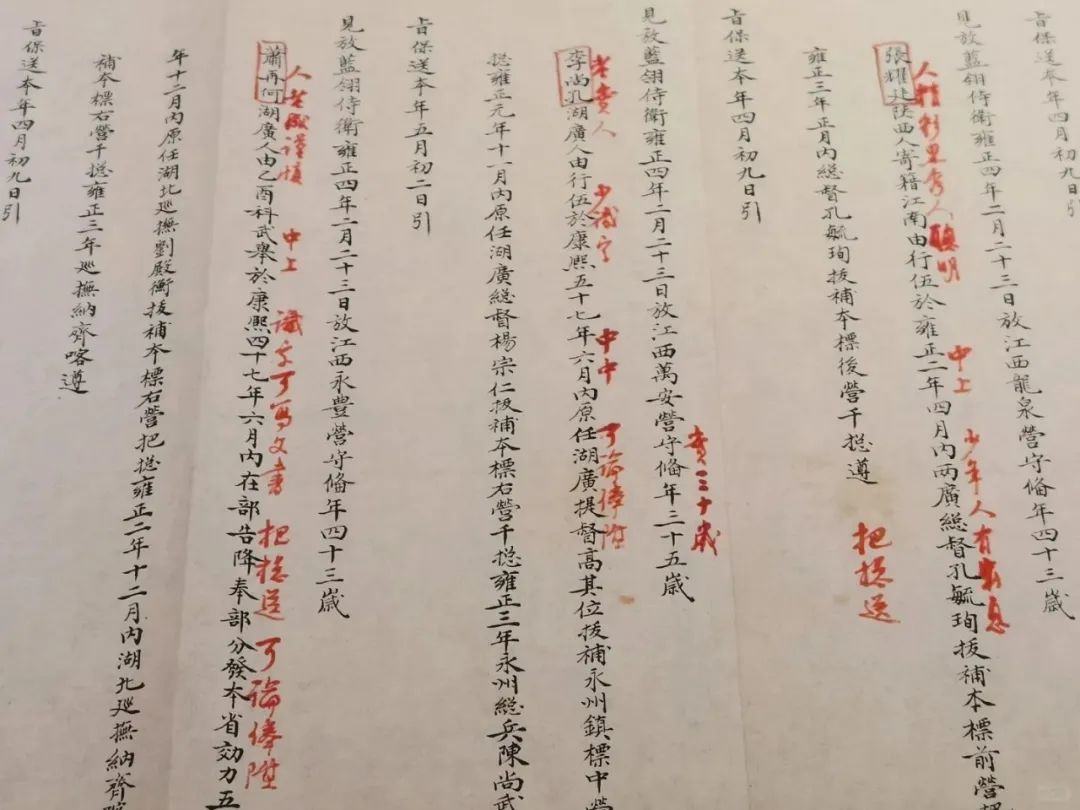 旨保送本年四月初九日引
見放藍翎侍衛雍正四年二月二十三日放江西龍泉營守俻年四十三歲
張耀建陝西人寄籍江南由行伍於雍正二年四月內兩廣總督孔毓珣拔補本標前營
人 聰明 中上 少年人有
雍正三年正月內總督孔毓珣拔補本標後營千搃遵
把搃送
旨保送本年四月初九日引
見放藍翎侍衛雍正四年二月二十三日放江西萬安營守俻年三十五歲
李尚孔湖廣人由行伍於康熙五十七年六月內原任湖廣提督高其位拔補永州鎮標中營
老實人 中中 可論俸陞
搃雍正元年十一月內原任湖廣總督楊宗仁拔補本標右營千搃雍正三年永州總兵陳尚武
旨保送本年五月初二日引
見放藍翎侍衛雍正四年二月二十三日放江西永豐營守俻年四十三歲
蕭再何湖廣人由乙酉科武舉於康熙四十七年六月內在部告降奉部分發本省効力五
人老成謹慎 中上 識字可寫文書 把搃送 可論俸陞
年十二月內原任湖北廵撫劉殿衡拔補本標右營把搃雍正二年十二月內湖北廵撫納齊喀
補本標右營千搃雍正三年廵撫納齊喀遵
旨保送本年四月初九日引